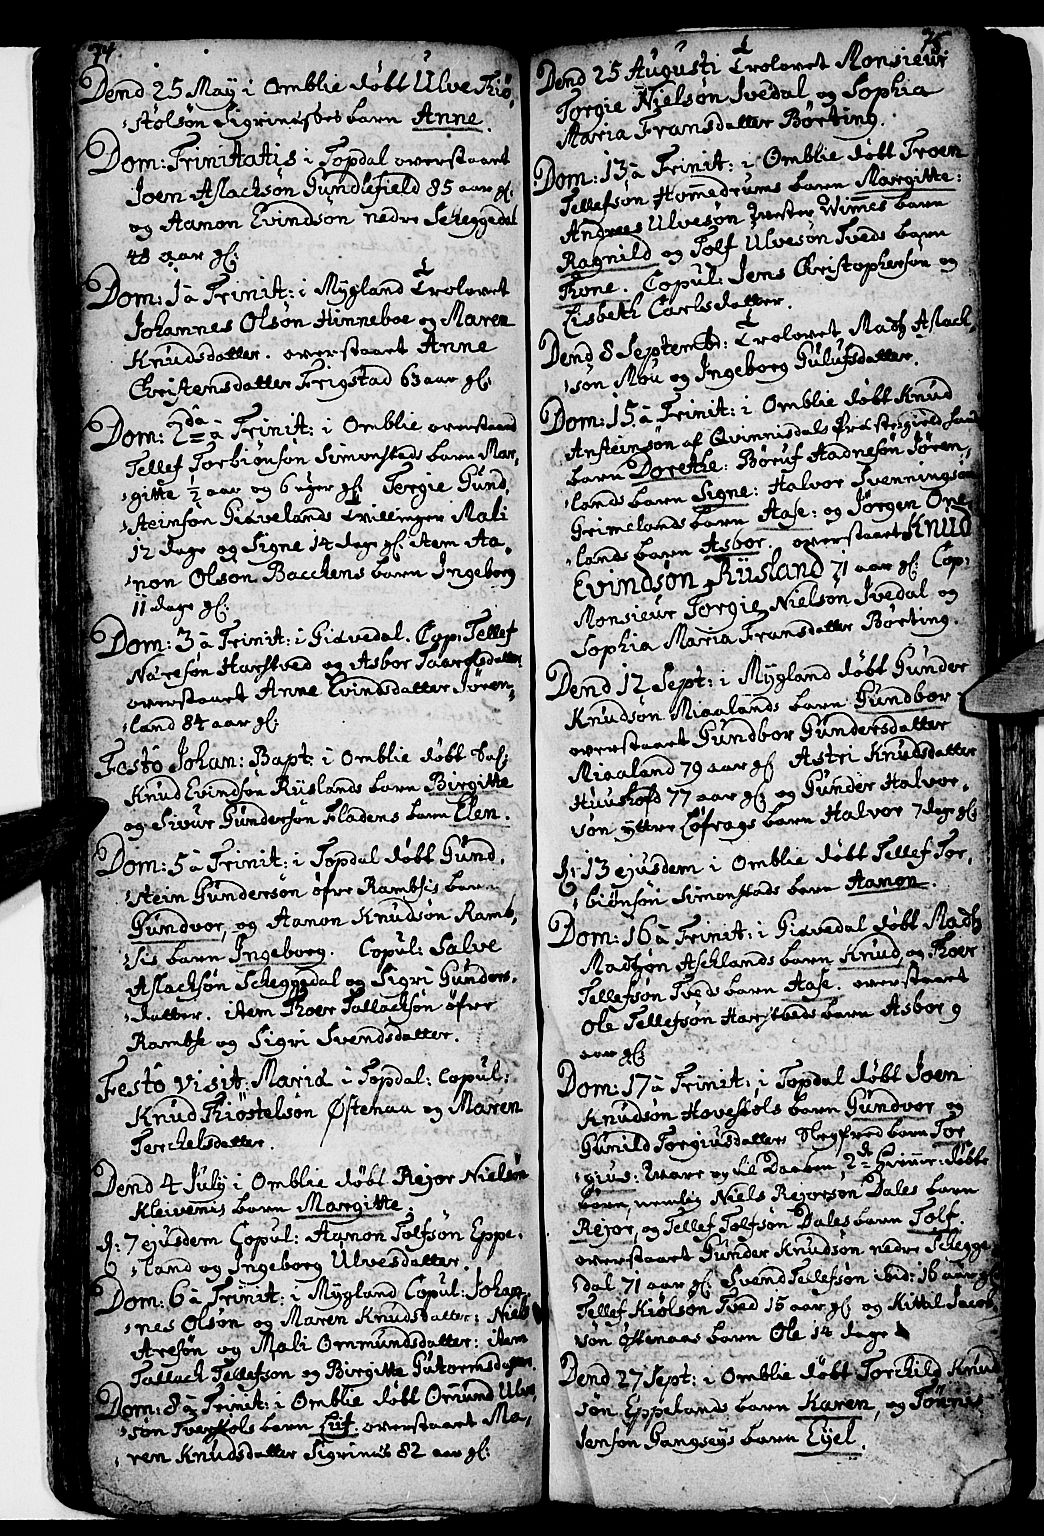 74.
Dend 25 May i Omblie døbt Ulve Kiø,
stolsøn Sigrinestes barn Anne.
Dom: Trinitatis i Topdal overstaaet
Joen Aslachsøn Gundlefield 85 aar gl:
og Aanon Evindsøn nedre Scheggedal
48 aar gl:
Dom: 1 à Trinit: i Mygland Trolovet
Johannes Olsøn Hinneboe og Maren
Knudsdatter. overstaaet Anne
Christensdatter Frigstad 63 aar gl:
Dom: 2da à Trinit: i Omblie overstaaet
Tellef Torbiønsøn Simonstads barn Mar,
gitte 1/2 aar og 6 uger gl Tergie Gund,
steinsøn Gidvelands Trillinger Mali
12 dage og Signe 14 dage gl. item Aa,
non Olsøn Bacchens barn Ingeborg
11 dage gl:
Dom: 3 à Trinit: i Gidvedal. Cop: Tellef
Narfesøn Harstved og Asbor Taaraldsdatter
overstaaet Anne Evindsdatter Jøren,
land 84 aar gl:
Festo Johan: Bapt: i Omblie døbt Sal:
Knud Evindsøn Riislands barn Birgitte
og Sivur Gundersøn Fladens barn Elen.
Dom: 5 à Trinit: i Topdal døbt Gund,
stein Gundersøn øfre Rambsis barn
Gundvor, og Aanon Knudsøn Ramb,
sis barn Ingeborg. Copul: Salve
Aslachsøn Scheggedal og Sigri Gunders,
datter. item Thoer Tallachsøn øfre
Rambse og Sigri Svendsdatter.
Festo Visit: Mariæ i Topdal: Copul:
Knud Kiøstelsøn Østenaa og Maren
Terchelsdatter.
Dend 4 July i Omblie døbt Rejor Nielsøn
Kleivenis barn Margitte.
d: 7 ejusdem Copul: Aanon Tolfsøn Eppe,
land og Ingeborg Ulvesdatter.
Dom: 6 à Trinit: i Mygland Copul: Johan,
nes Olsøn og Maren Knudsdatter: Niels
Aresøn og Mali Ommundsdatter: item
Tallach Tellefsøn og Birgitte Gutormsdatter.
Dom: 8 à Trinit: i Omblie døbt Omund Ulv,
søn Tveitols barn Liif. overstaaet Ma,
ren Knudsdatter Sigrinæs 82 aar gl:
75.
Dend 25 Augusti Trolovet Monsieur
Torgie Nielsøn Svedal og Sophia
Maria Fransdatter Børting.
Dom: 13 à Trinit: i Omblie døbt Troen
Tellefsøn Hommedrums barn Margitte:
Andrees Ulvesøn Vester Wimmes barn
Ragnild og Tolf Ulvesøn Tveds barn
Thone. Copul: Jens Christophersøn og
Lisbeth Carlsdatter.
Dend 8 Septembr: Trolovet Madz Aslach,
søn Mou og Ingeborg Gulufsdatter.
Dom: 15 à Trinit: i Omblie døbt Knud
Ansteinsøn af Qvinnisdals Præstegield
barn Dorethe: Børuf Aadnesøn Jøren,
lands barn Signe: Halvor Svenningsøn
Grimelands barn Aase: og Jørgen One,
lands barn Asbor. overstaaet Knud
Evindsøn Riisland 71 aar gl: Cop:
Monsieur Torgie Nielsøn Svedal og
Sophia Maria Fransdatter Børting.
Dend 12 Sept: i Mygland døbt Gunder
Knudsøn Miaalands barn Gundbor:
overstaaet Gundbor Gundersdatter
Miaaland 79 aar gl Astri Knudsdatter
Huushofd 77 aar gl og Gunder Halvor,
søn yttre Lofrags barn Halvor 7 dage gl:
d: 13 ejusdem i Omblie døbt Tellef Tor,
biønsøn Simonstads barn Aanon.
Dom: 16 à Trinit: i Gidvedal døbt Madz
Madzøn Aschlands barn Knud, og Thoer
Tellefsøn Tveds barn Aase. overstaaet
Ole Tellefsøn Harstveds barn Asbor 9
aar gl:
Dom: 17 à Trinit: i Topdal døbt Joen
Knudsøn Hovestøls barn Gundvor og
Gunild Torgiusdatters Slegfred barn Tor
gius: Ware og til Daaben 2de hiemme døbte
børn, nemlig Niels Rejorsøn Dales barn
Rejor, og Tellef Tolfsøn Dales barn Tolf.
overstaaet Gunder Knudsøn nedre Schegge,
dal 71 aar gl Svend Tellefsøn ibid: 16 aar gl
Tellef Kiølsøn Tved 15 aar gl og Kittil Jacob,
søn Østenaas barn Ole 14 dage
Dend 27 Sept: i Omblie døbt Torchild Knud
søn Eppelands barn Karen, og Tønnes
Jensøn Gangseys barn Eyel.